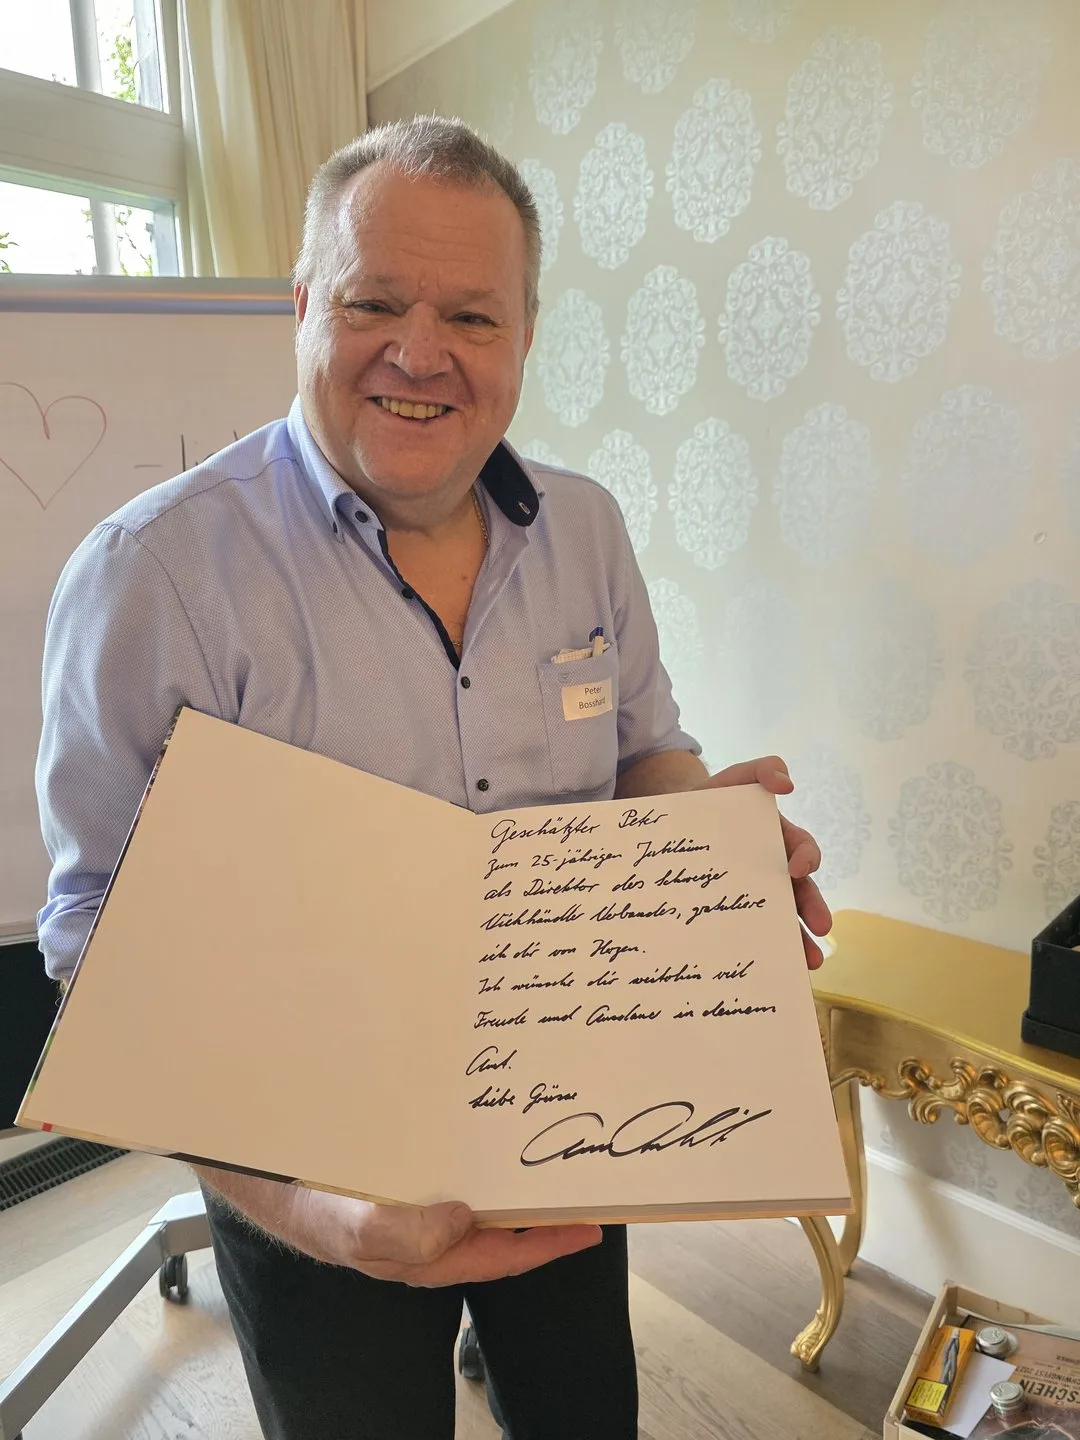 Peter
Bosshard
Geschätzter Peter
zum 25-jährigen Jubiläum
als Direktor des Schweizer
Viehhändler Verbandes, gratuliere
ich dir von Herzen.
Ich wünsche dir weiterhin viel
Freude und Ausdauer in deinem
Amt.
Liebe Grüsse
SCHEIN
SCHWINGFEST 2021